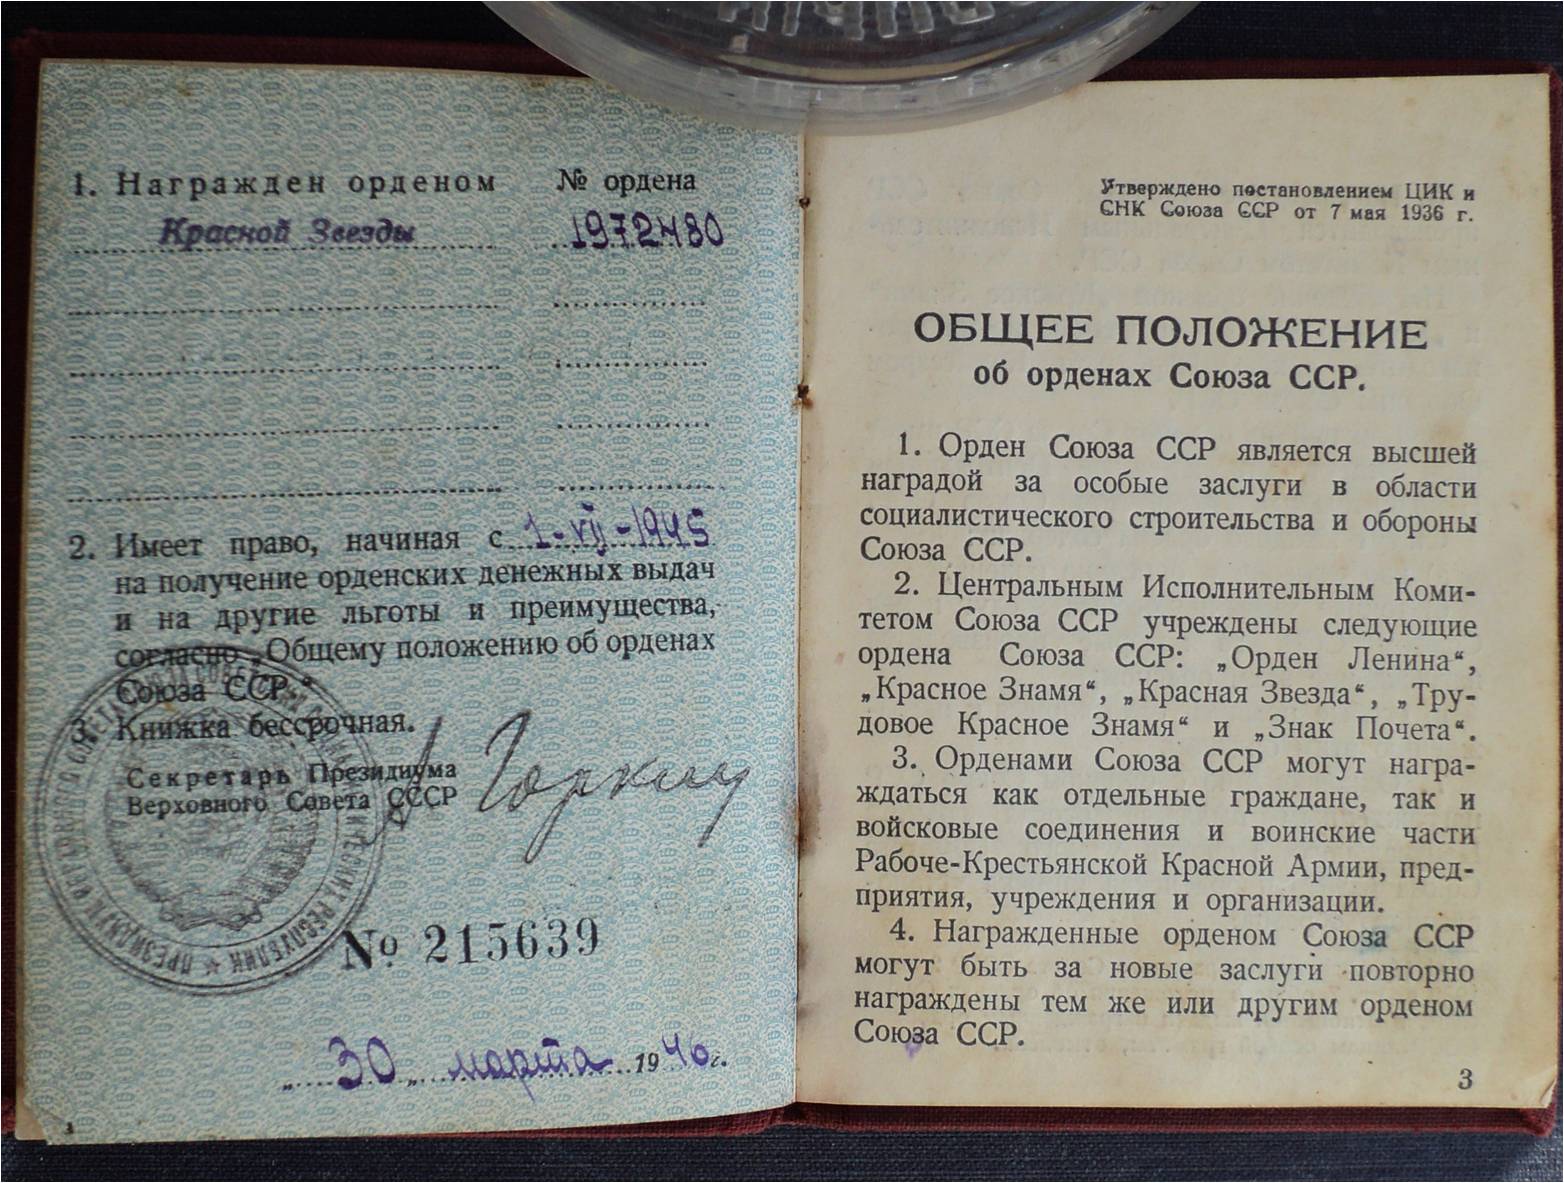 1. Награжден орденом № ордена
Красной Звезды 1972480
2. Имеет право, начиная с 1-VII-1945
на получение орденских денежных выдач
и на другие льготы и преимущества,
согласно „Общему положению об орденах
Союза ССР.“
3. Книжка бессрочная.
Секретарь Президиума
Верховного Совета СССР
А Горкин
ПРЕЗИДИУМ ВЕРХОВНОГО СОВЕТА СОЮЗА СОВЕТСКИХ СОЦИАЛИСТИЧЕСКИХ РЕСПУБЛИК
№ 215639
„30„ марта 1946 г.
1
Утверждено постановлением ЦИК и
СНК Союза ССР от 7 мая 1936 г.
ОБЩЕЕ ПОЛОЖЕНИЕ
об орденах Союза ССР.
1. Орден Союза ССР является высшей
наградой за особые заслуги в области
социалистического строительства и обороны
Союза ССР.
2. Центральным Исполнительным Коми-
тетом Союза ССР учреждены следующие
ордена Союза ССР: „Орден Ленина“,
„Красное Знамя“, „Красная Звезда“, „Тру-
довое Красное Знамя“ и „Знак Почета“.
3. Орденами Союза ССР могут награ-
ждаться как отдельные граждане, так и
войсковые соединения и воинские части
Рабоче-Крестьянской Красной Армии, пред-
приятия, учреждения и организации.
4. Награжденные орденом Союза ССР
могут быть за новые заслуги повторно
награждены тем же или другим орденом
Союза ССР.
3